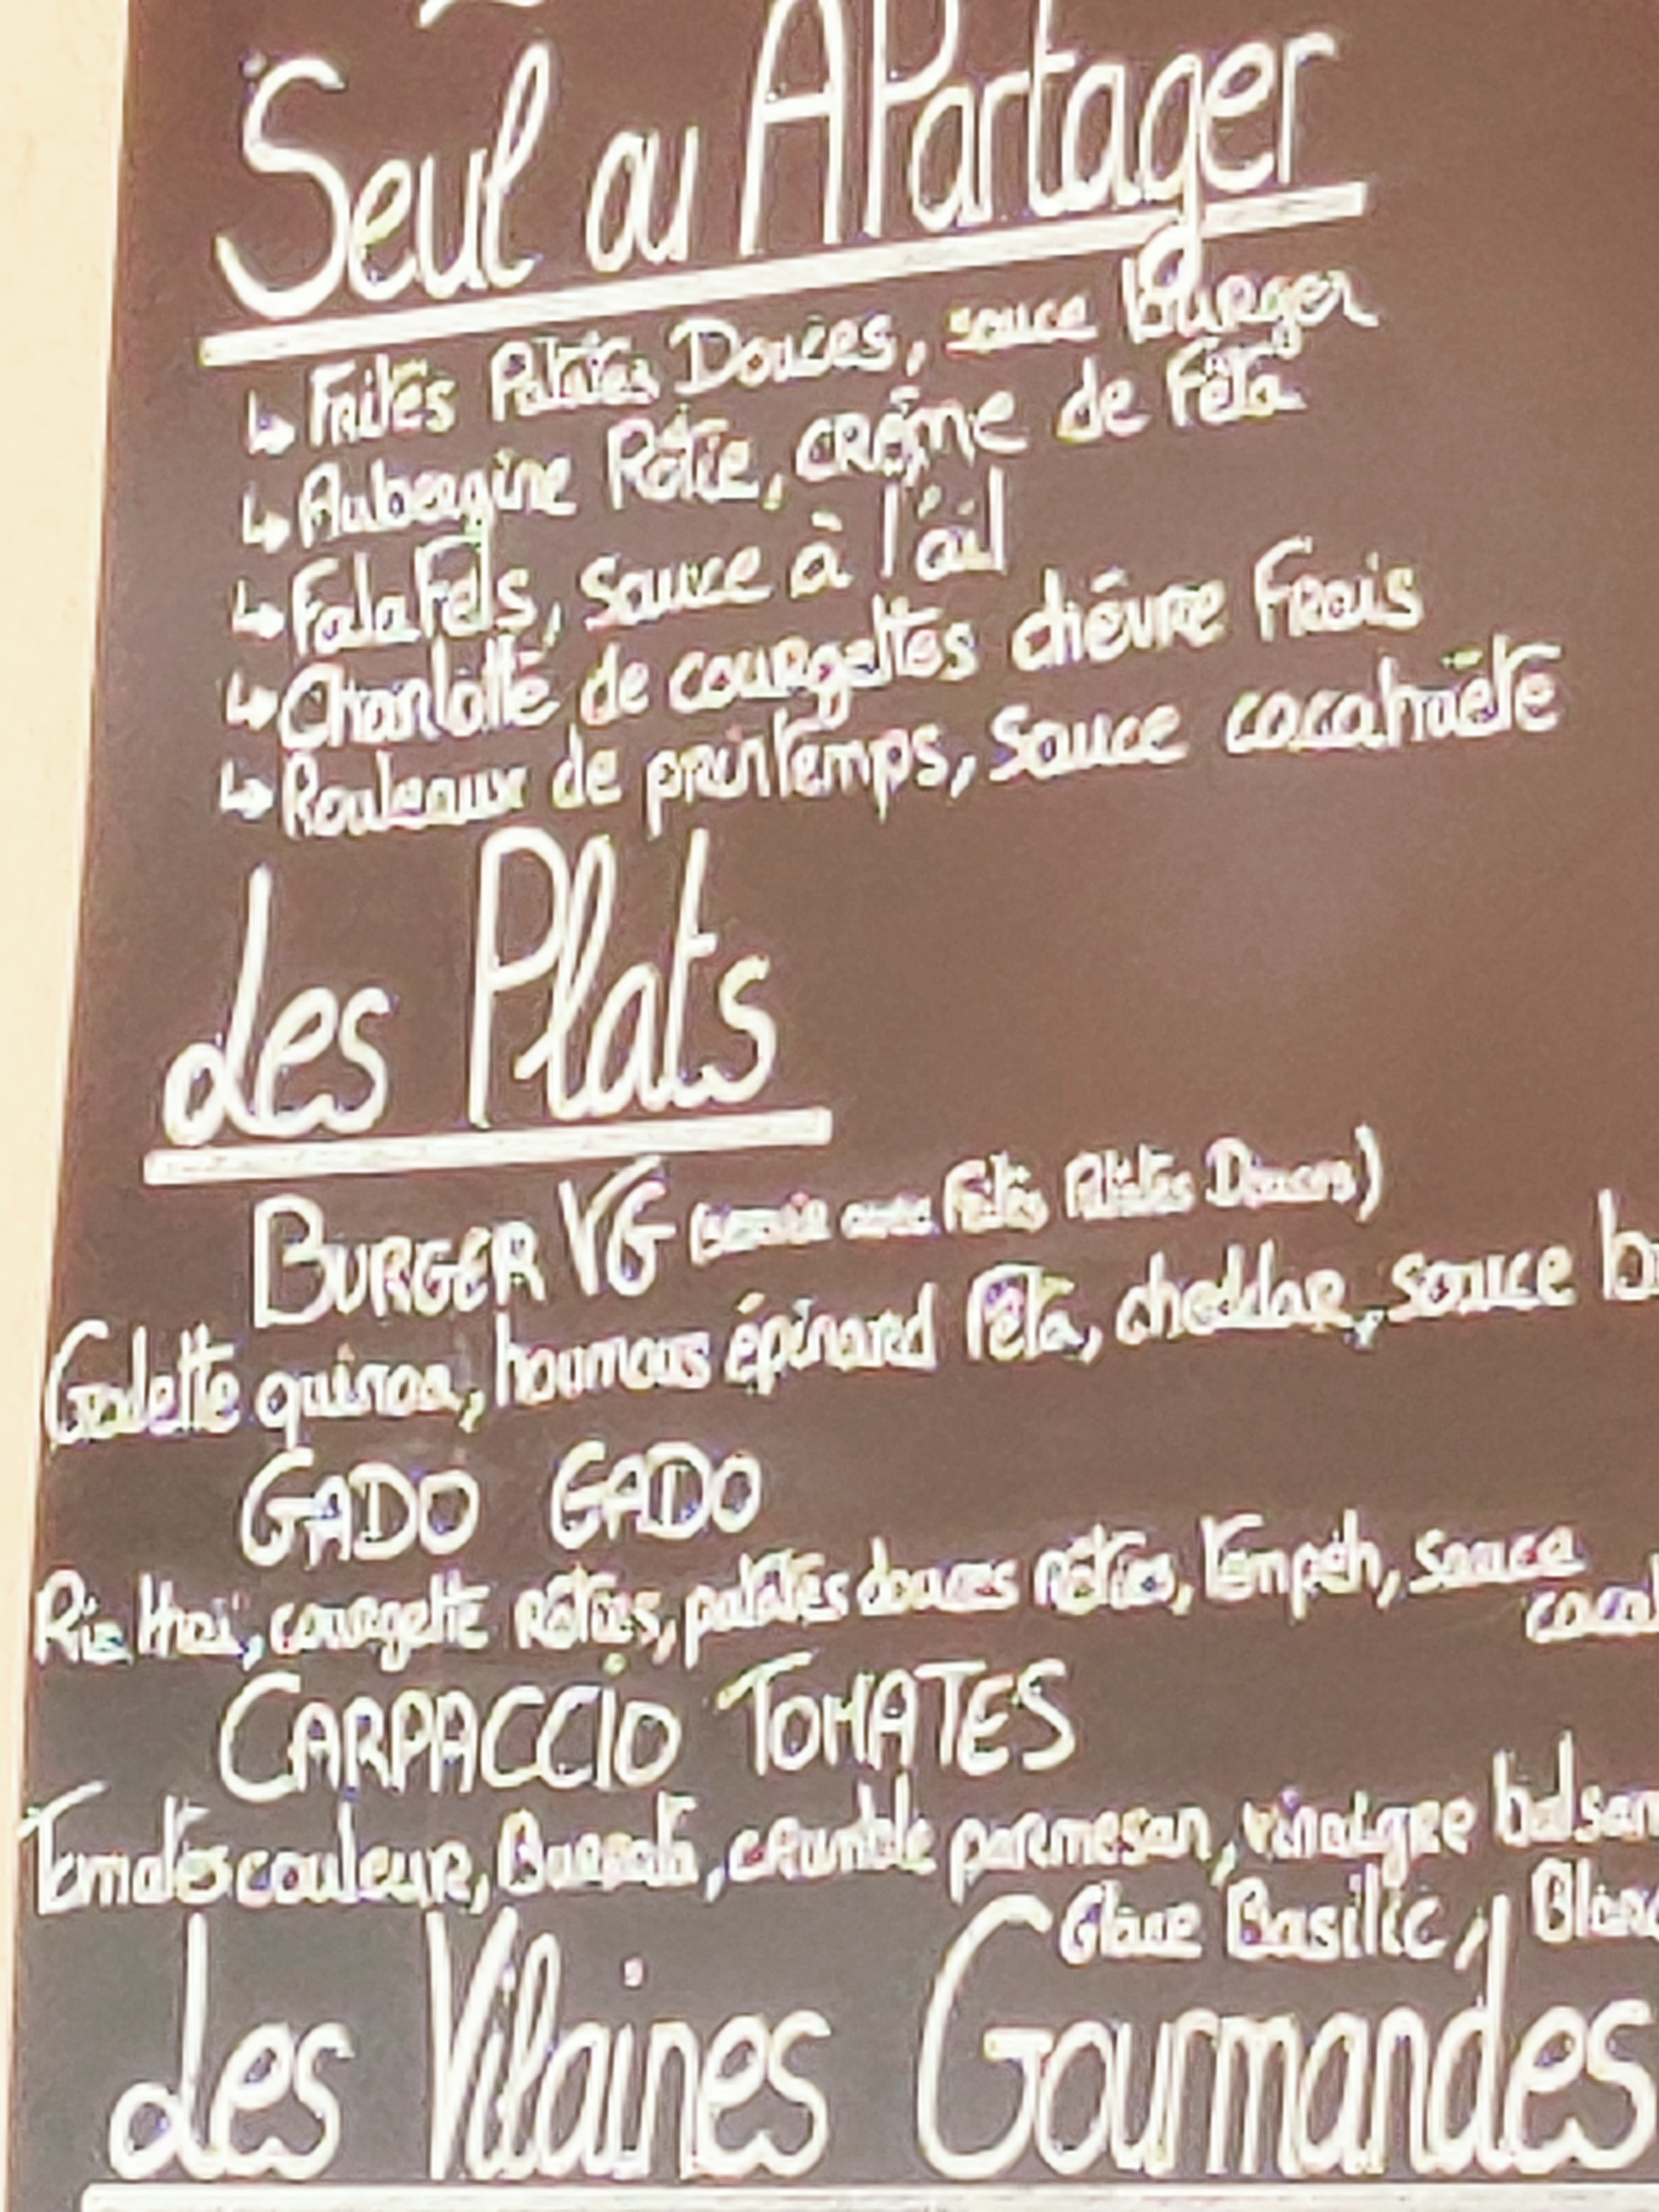 Seul ou A Partager
↳ Frites Patates Douces, sauce Burger
↳ Aubergine Rôtie, crème de Féta
↳ Falafels, sauce à l'ail
↳ Charlotte de courgettes chèvre Frais
↳ Rouleaux de printemps, sauce cacahuète
Les Plats
BURGER VG (servie avec Frites Patates Douces)
Galette quinoa, houmous épinard Féta, cheddar, sauce
GADO GADO
Riz thaï, courgette rôties, patates douces rôties, tempeh, sauce
CARPACCIO TOMATES
Tomates couleur, Burrata, crumble parmesan, vinaigre
Glace Basilic,
Les Vilaines Gourmandes